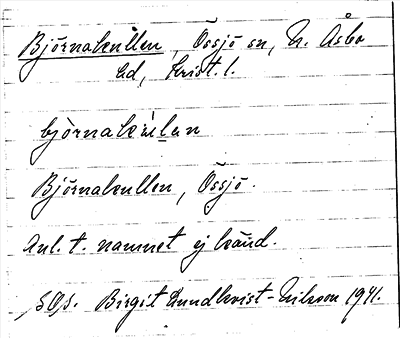 Björnakullen, Össjö sn, N. Åsbo
hd, Krist. l.
björnakùlan
Björnakullen, Össjö.
Anl. t. namnet ej känd.
SOJ. Birgit Lundkvist-Nilsson 1941.